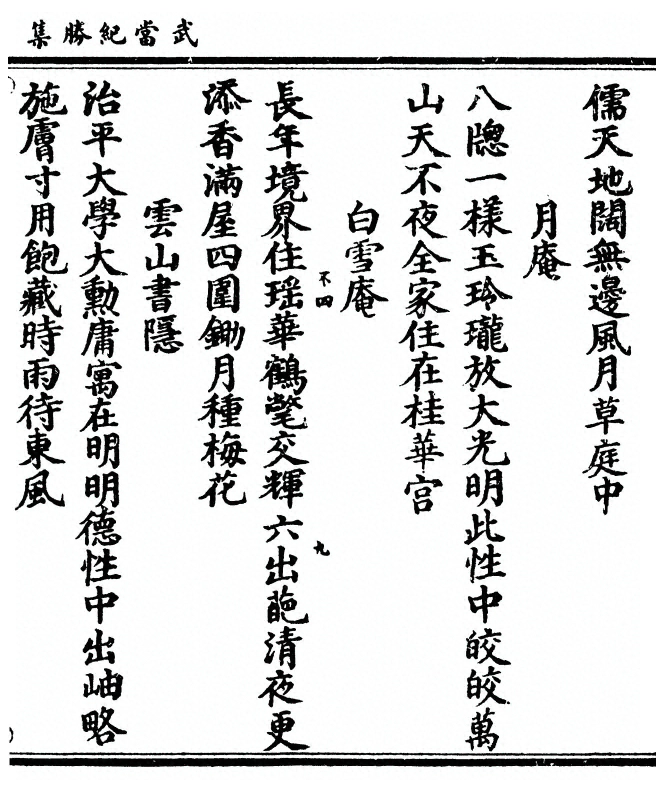 武當紀勝集
儒天地闊無邊風月草庭中
月庵
八牕一樣玉玲瓏放大光明此性中皎皎萬
山天不夜全家住在桂華宫
白雪庵
不四
九
長年境界住瑶華鶴氅交輝六出葩清夜更
添香滿屋四圍鋤月種梅花
雲山書隱
治平大學大勳庸寓在明明德性中出岫略
施膚寸用飽藏時雨待東風